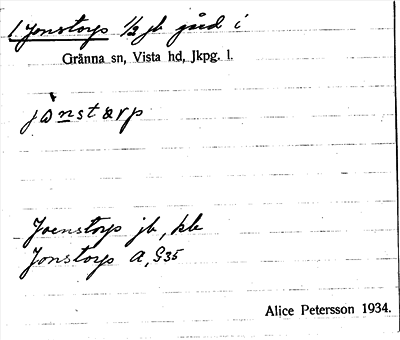 1. Jonstorp 1/2 jb gård i
Gränna sn, Vista hd, Jkpg. l.
jònstarp
Joenstorp jb, kb
Jonstorp A, G35
Alice Petersson 1934.